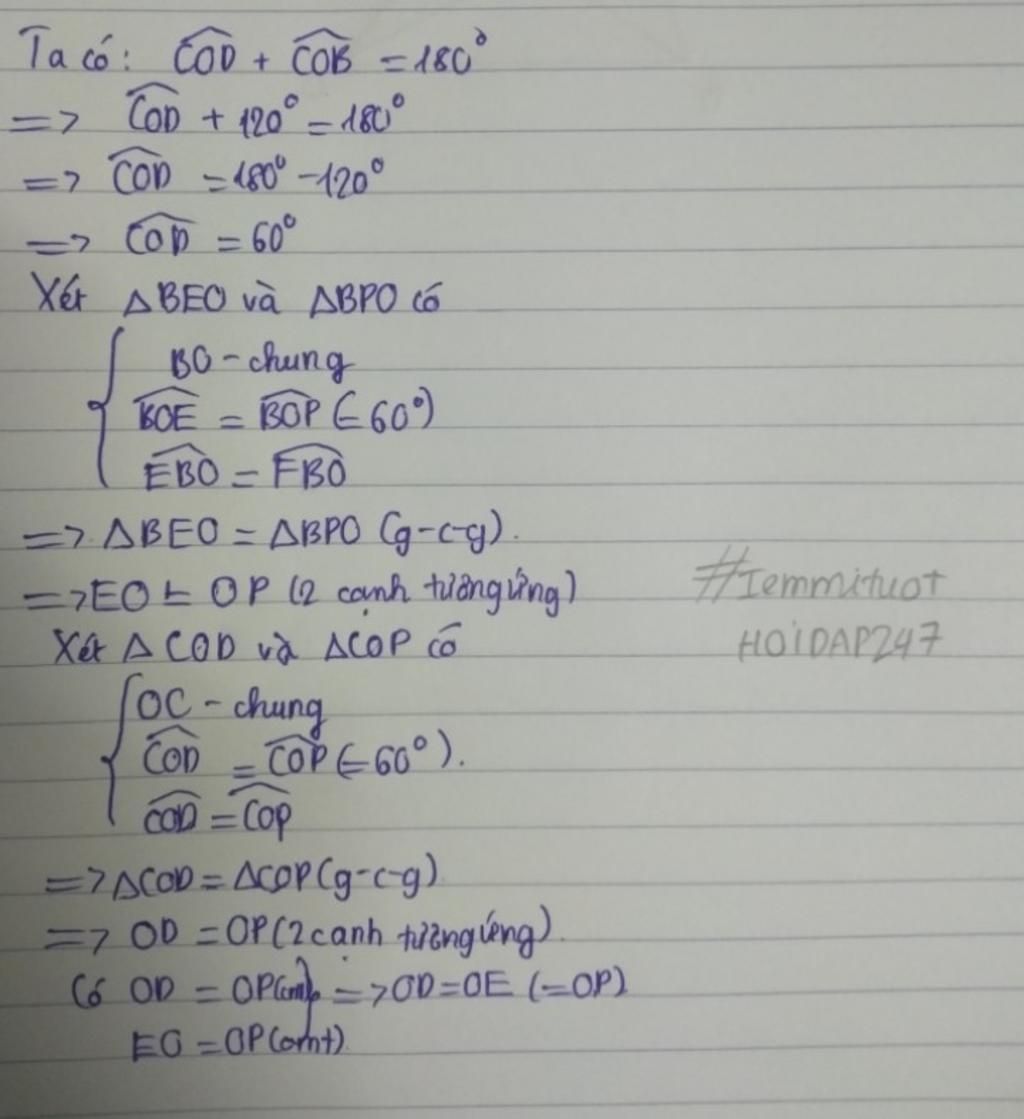 Ta có: COD + COB = 180°
=> COD + 120° = 180°
=> COD = 180° - 120°
=> COD = 60°
Xét △BEO và △BPO có
BO - chung
BOE = BOP (= 60°)
EBO = FBO
=> △BEO = △BPO (g-c-g).
=> EO = OP (2 cạnh tương ứng)
#Iemmituot
HOIDAP247
Xét △COD và △COP có
OC - chung
COD = COP (= 60°).
COD = COP
=> △COD = △COP (g-c-g)
=> OD = OP (2 cạnh tương ứng).
Có OD = OP(cmt) => OD = OE (=OP)
EO = OP(cmt)